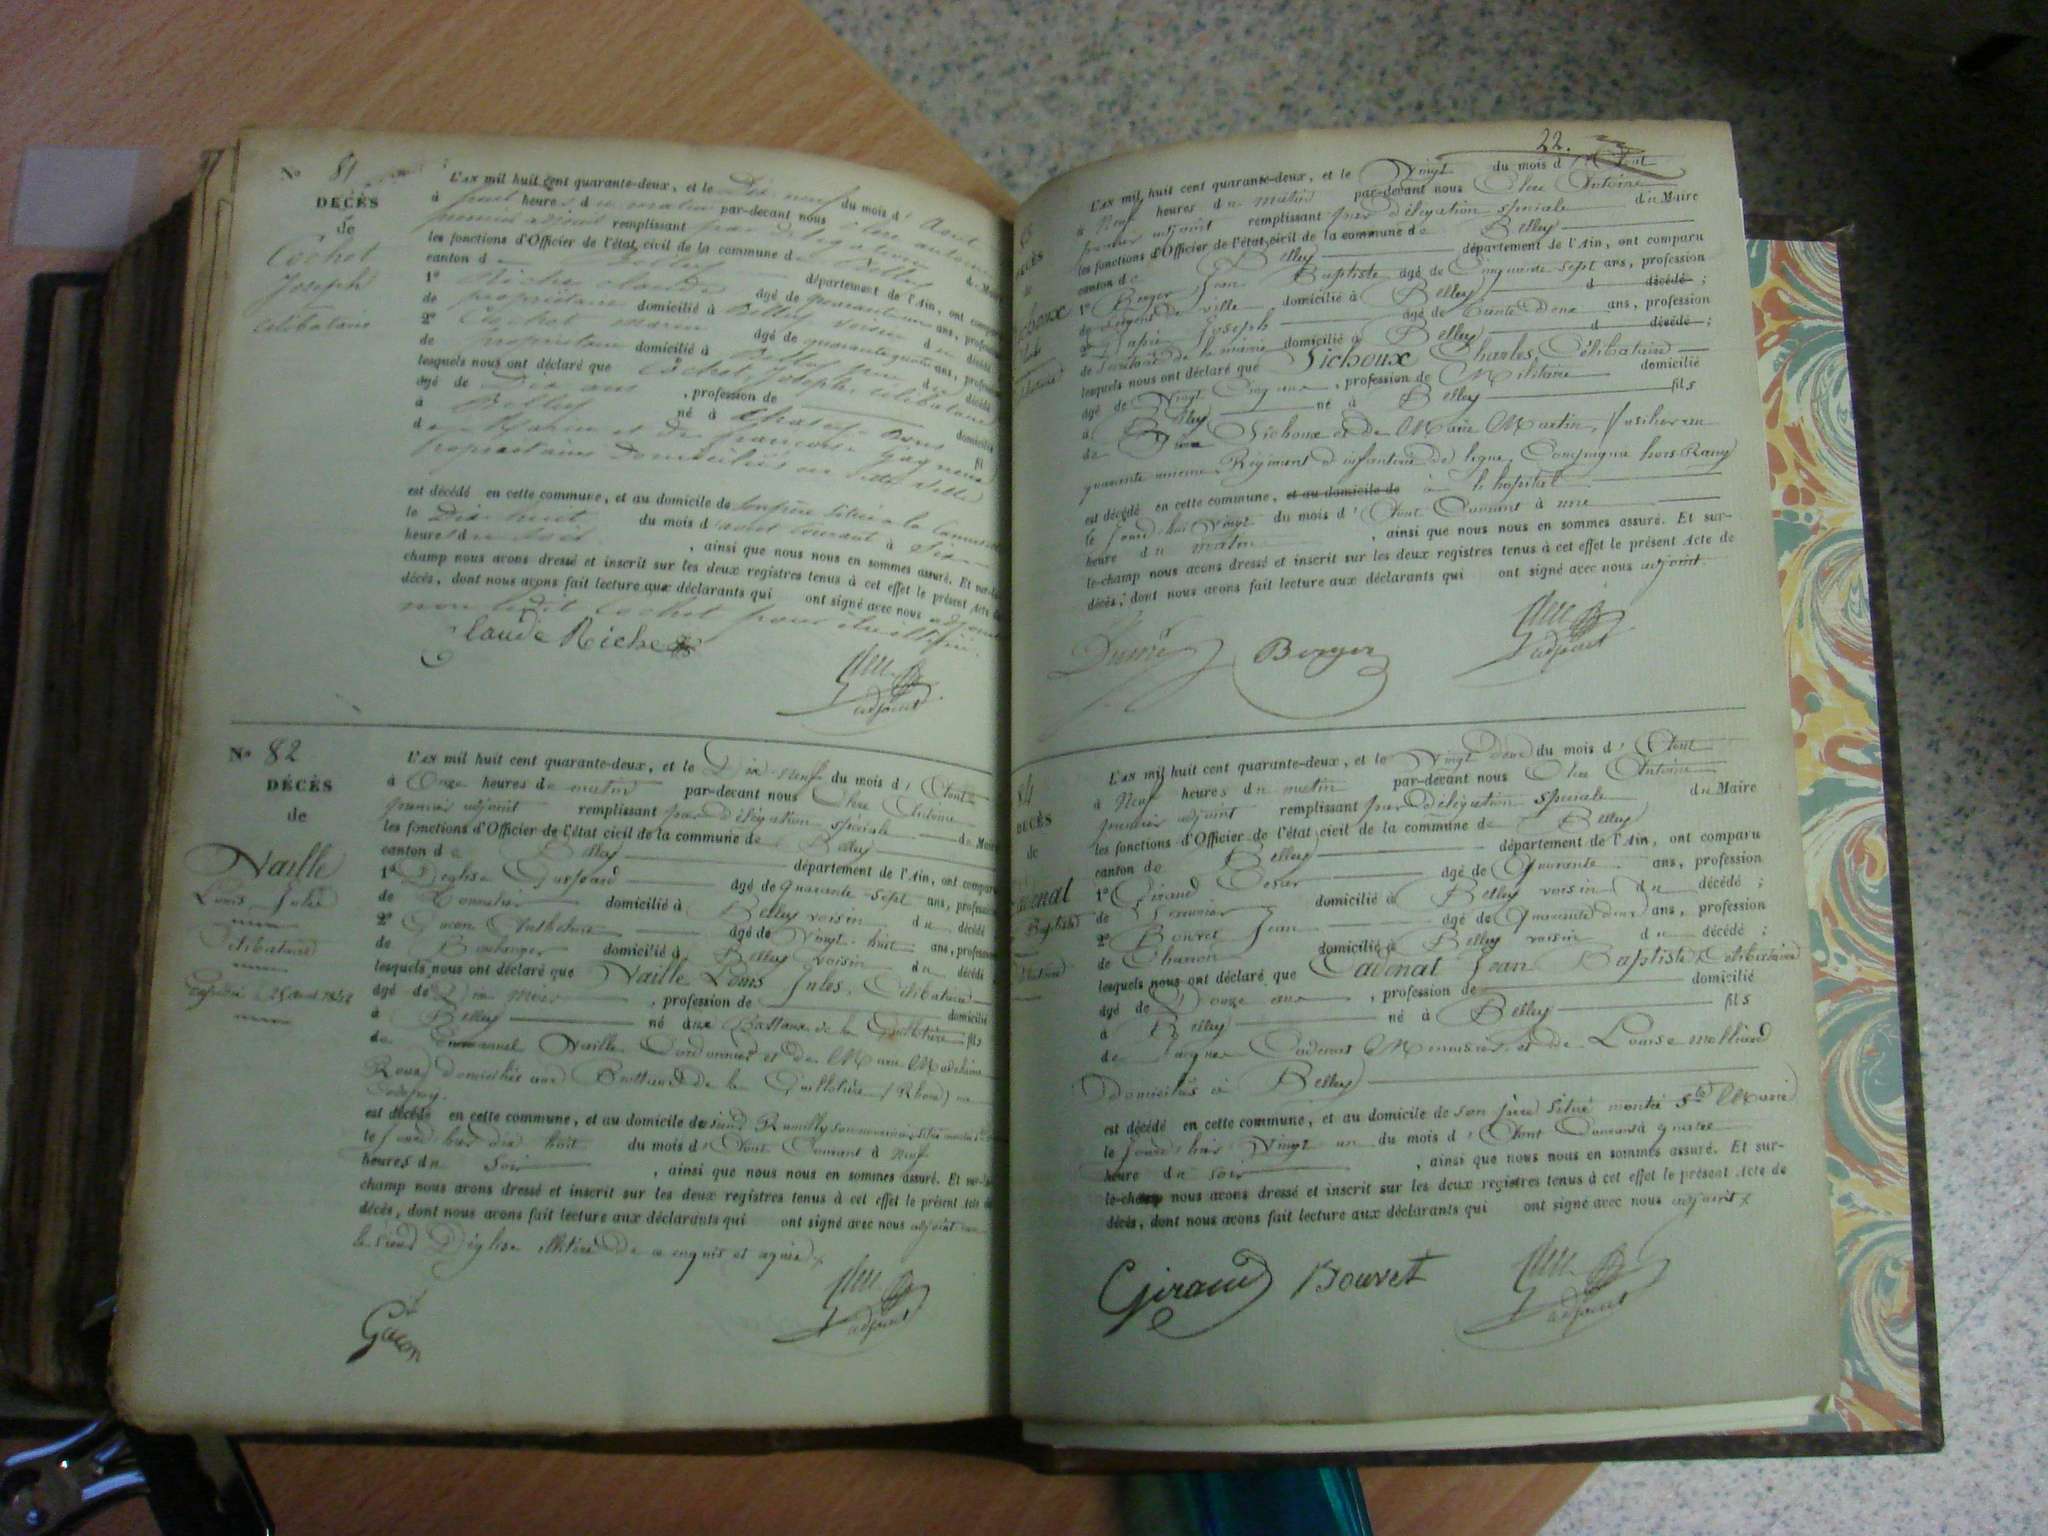 Nº 81
DÉCÈS
de
Cochet
Joseph
célibataire
L'AN mil huit cent quarante-deux, et le Dix neuf du mois d' Aout
à heures du matin par-devant nous Clerc antoine
premier adjoint remplissant par délégation
les fonctions d'Officier de l'état civil de la commune de Belley
canton de Belley département de l'Ain, ont comparu
1º Riche claude âgé de quarante un ans, profession
de propriétaire domicilié à Belley voisin du décédé
2º Cochet marin âgé de quarante quatre ans, profession
de propriétaire domicilié à Belley père du décédé
lesquels nous ont déclaré que Cochet Joseph célibataire
âgé de Dix ans , profession de domicilié
à Belley né à fil
de Marin et de françoise
propriétaires Domiciliés en
est décédé en cette commune, et au domicile de son père situé à la
le Dix huit du mois d' aout courant à Six
heures du soir , ainsi que nous nous en sommes assuré. Et sur-le-
champ nous avons dressé et inscrit sur les deux registres tenus à cet effet le présent Acte de
décès, dont nous avons fait lecture aux déclarants qui ont signé avec nous adjoint
non ledit Cochet pour être illitéré.
Claude Riche
adjoint
Nº 82
DÉCÈS
de
Naille
Louis Jules
Célibataire
L'AN mil huit cent quarante-deux, et le Dix-neuf du mois d' Aout
à Onze heures du matin par-devant nous Clerc Antoine
premier adjoint remplissant par délégation spéciale du Maire
les fonctions d'Officier de l'état civil de la commune de Belley
canton de Belley département de l'Ain, ont comparu
1º Déglise Gaspard âgé de quarante sept ans, profession
de Tonnelier domicilié à Belley voisin du décédé
2º Gacon Anthelme âgé de vingt huit ans, profession
de Boulanger domicilié à Belley voisin du décédé
lesquels nous ont déclaré que Naille Louis Jules, Célibataire
âgé de Dix mois , profession de domicilié
à Belley né aux Brottaux de la Guillotière fils
de Emmanuel Naille Cordonnier et de Marie Madelaine
Roux domiciliés aux Brottaux de la Guillotière (Rhône)
est décédé en cette commune, et au domicile de sieur Rumilly son nourricier situé
le jour d'hier dix huit du mois d' Aout Courant à Neuf
heures du soir , ainsi que nous nous en sommes assuré. Et sur-le-
champ nous avons dressé et inscrit sur les deux registres tenus à cet effet le présent Acte de
décès, dont nous avons fait lecture aux déclarants qui ont signé avec nous adjoint non
le sieur Déglise illitéré de ce enquis et
Gacon
adjoint
22.
DÉCÈS
de
L'AN mil huit cent quarante-deux, et le Vingt du mois d' Aout
à Neuf heures du matin par-devant nous Clerc Antoine
premier adjoint remplissant par délégation spéciale du Maire
les fonctions d'Officier de l'état civil de la commune de Belley
canton de Belley département de l'Ain, ont comparu
1º Berger Jean Baptiste âgé de Cinquante sept ans, profession
de Sergent de ville domicilié à Belley d décédé ;
2º Joseph âgé de Trente deux ans, profession
de Secrétaire de la mairie domicilié à Belley d décédé ;
lesquels nous ont déclaré que Sichoux Charles, Célibataire
âgé de Vingt Cinq ans , profession de Militaire domicilié
à Belley né à Belley fils
de Sichoux et de Marie Martin, fusilier au
quarante unieme Régiment d'infanterie de ligne, Compagnie hors Rang
est décédé en cette commune, et au domicile de à l'hopital
le jour d'hui Vingt du mois d' Aout Courant à une
heure du matin , ainsi que nous nous en sommes assuré. Et sur-
le-champ nous avons dressé et inscrit sur les deux registres tenus à cet effet le présent Acte de
décès, dont nous avons fait lecture aux déclarants qui ont signé avec nous adjoint
Berger
adjoint
84
DÉCÈS
de
L'AN mil huit cent quarante-deux, et le Vingt deux du mois d' Aout
à Neuf heures du matin par-devant nous Clerc Antoine
premier adjoint remplissant par délégation spéciale du Maire
les fonctions d'Officier de l'état civil de la commune de Belley
canton de Belley département de l'Ain, ont comparu
1º Giraud César âgé de Quarante ans, profession
de Serrurier domicilié à Belley voisin du décédé ;
2º Bouvet Jean âgé de Quarante deux ans, profession
de Charron domicilié à Belley voisin du décédé ;
lesquels nous ont déclaré que Cadenat Jean Baptiste Célibataire
âgé de Douze ans , profession de domicilié
à Belley né à Belley fils
de Jacques Cadenat Menuisier et de Louise
Domiciliés à Belley
est décédé en cette commune, et au domicile de son père situé montée Ste Marie
le jour d'hier Vingt un du mois d' Aout Courant à quatre
heure du soir , ainsi que nous nous en sommes assuré. Et sur-
le-champ nous avons dressé et inscrit sur les deux registres tenus à cet effet le présent Acte de
décès, dont nous avons fait lecture aux déclarants qui ont signé avec nous adjoint
Giraud Bouvet
adjoint